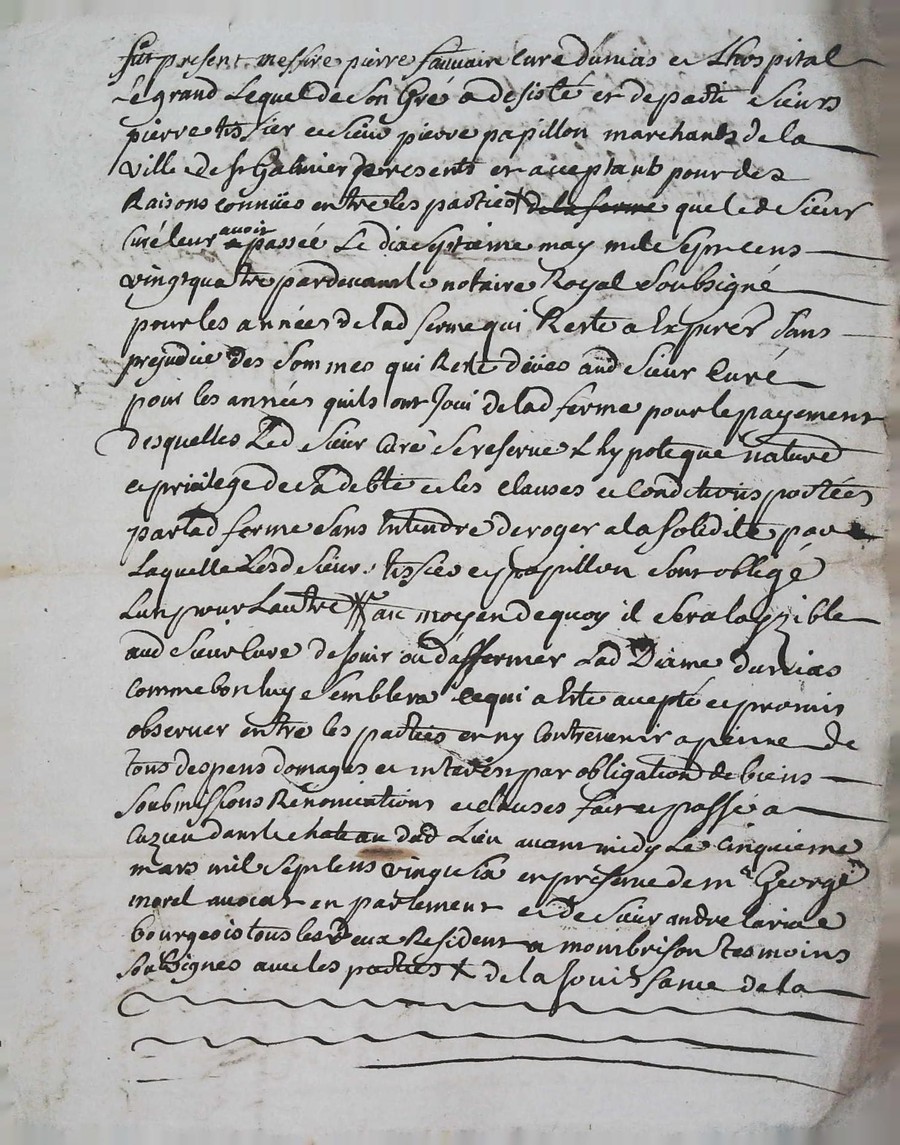 fut present messire pierre fauvaire curé dunias et Lhospital
Le grand Lequel de Son Gré a desisté et departi Sieurs
pierre tissier et Sieur pierre papillon marchants de la
ville de st Galmier presents et acceptants pour des
Raisons connües entre les parties + de la ferme que led Sieur
Curé leur avoir passée Le dixseptieme may mile Sept cens
vingt quatre pardevant le notaire Royal Soubsigné
pour les années de lad ferme qui Reste a Expirer Sans
prejudice des Sommes qui Reste düees aud Sieur Curé
pour les années quils ont Joui de lad ferme pour le payement
desquelles Led Sieur Curé se reserve Lhypoteque nature
et privilege de Sa debte et les clauses et Conditions portées
par lad ferme Sans Entendre deroger a la Solidité par
Laquelle Lesd Sieur tissier et papillon Sont obligé
Lun pour Lautre au moyen de quoy il Sera Loizible
aud Sieur Curé de Jouir ou daffermer Lad Diame dunias
Comme bon luy Semblera ce qui a Esté accepté et promis
observer entre les parties et ny Contrevenir a peinne de
tous despens domages et interest par obligation de biens
Soubmissions Renonciations et clauses fait et passé a
Cuzieu dans le chateau dud Lieu avant midy Le Cinquieme
mars mil Sept Cens vingt Six en presence de me George
morel avocat en parlement et de Sieur andre Larive
bourgeois tous les deux Resident a mombrison tesmoins
Soubsignes avec les parties + de la Jouissance de la